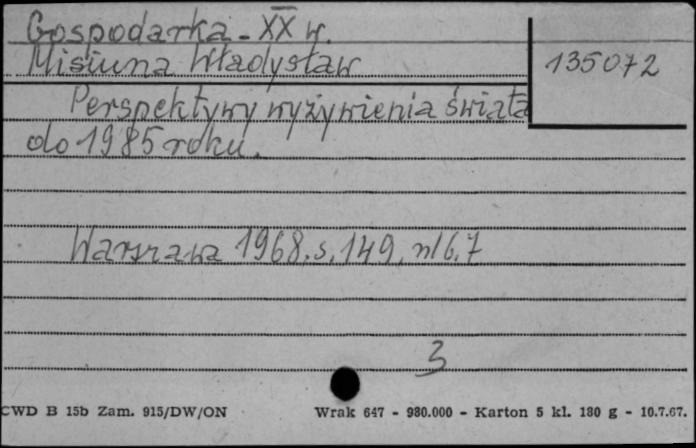 Gospodarka - XX w.
Misiuna Władysław
135072
Perspektywy wyżywienia świata
do 1985 roku.
Warszawa 1968, s. 149, nl 6, 7
3
CWD B 15b Zam. 915/DW/ON
Wrak 647 - 980.000 - Karton 5 kl. 180 g - 10.7.67.